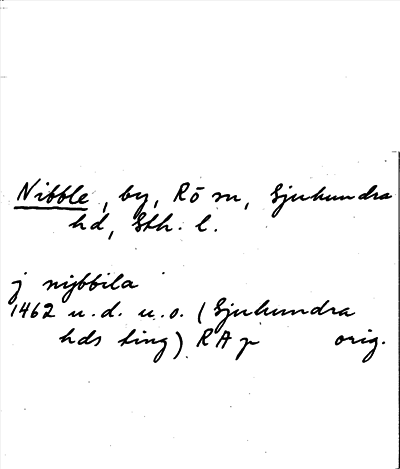 Nibble, by, Rö sn, Sjuhundra
hd, Sth. l.
j nybbila
1462 u.d. u.o. (Sjuhundra
hds ting) RA p orig.